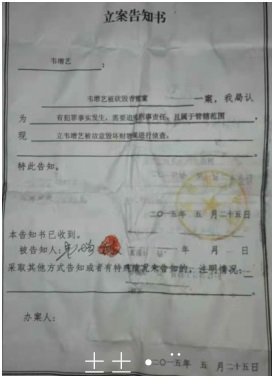 立案告知书
韦增艺 :
韦增艺被故毁 一案，我局认
为 有犯罪事实发生，需要追究刑事责任，且属于管辖范围
现 立韦增艺被故意毁坏财物案进行侦查。
特此告知。
二〇一五年 五月 二十五日
本告知书已收到。
被告知人: 年 月 日
采取其他方式告知或者有特殊情况未告知的，注明情况:
办案人:
二〇一五年 五月 二十五日